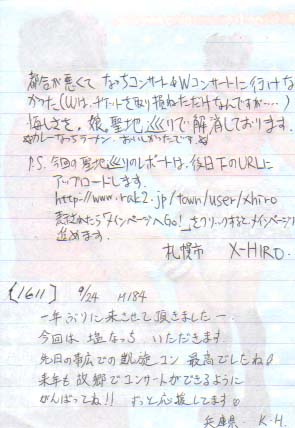 都合が悪くて なっちコンサート&Wコンサートに行けな
かった(Wは、チケットを取り損ねただけなんですが‥‥)
悔しさを、娘。聖地巡りで解消しております。
※カレーなっちラーメン、おいしかったです※
P.S. 今回の聖地巡りのレポートは、後日下のURLに
アップロードします。
http://www.rak2.jp/town/user/xhiro
表示されたら「メインページへGo!」をクリックするとメインページに
進めます。
札幌市 X-HIRO.
[1611] 9/24 H184
一年ぶりに来させて頂きましたー。
今回は 塩なっち いただきます
先日の帯広での凱旋コン 最高でしたね♪
来年も 故郷でコンサートができるように
がんばってね!! ずっと応援してます
兵庫県 K.H.